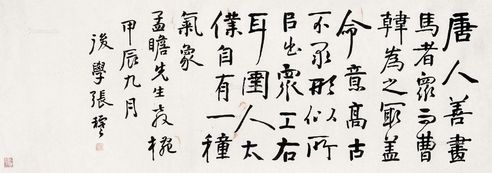 唐人善畫
馬者眾而曹
韓為之冣蓋
命意高古
不求形似所
㠯出眾工右
耳圉人太
僕自有一種
氣象
孟瞻先生教梚
甲辰九月
後學張穆